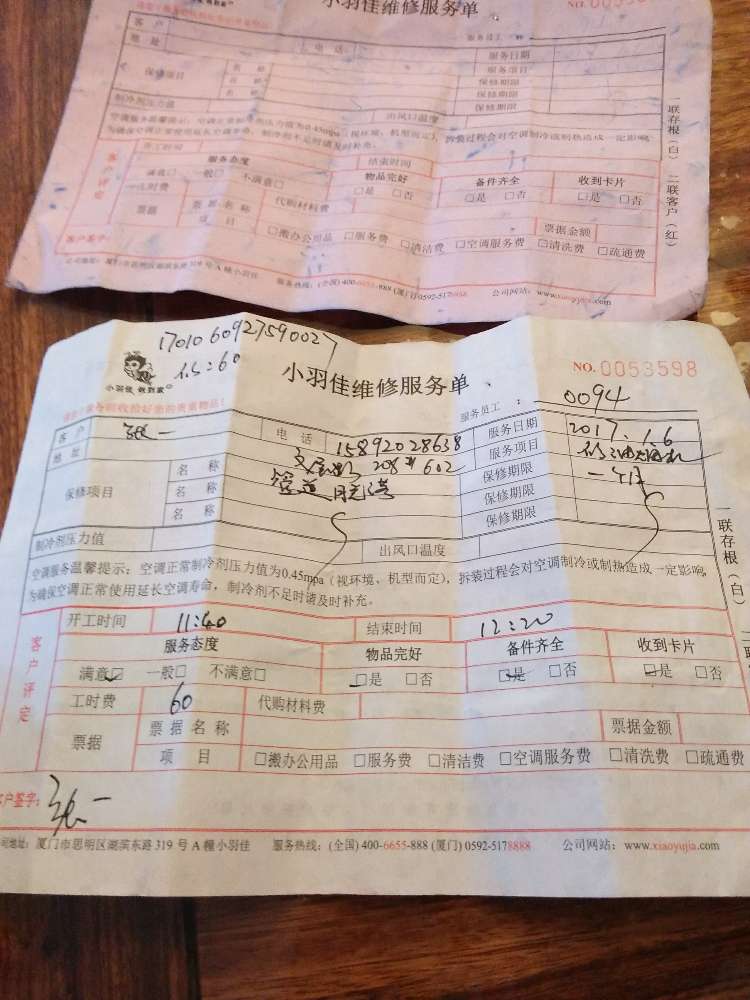 小羽佳维修服务单
客户
地址
电话
服务员工
服务日期
保修项目
名称
名称
服务项目
保修期限
保修期限
保修期限
制冷剂压力值
出风口温度
开工时间
结束时间
服务态度
物品完好
备件齐全
收到卡片
满意□ 一般□ 不满意□
□是 □否
□是 □否
□是 □否
代购材料费
票据
票据名称
票据金额
项目
□搬办公用品 □服务费 □清洁费 □空调服务费 □清洗费 □疏通费
客户评定
客户签字:
联存根(白) 二联客户(红)
17010609275900 27
修:60
小羽佳 做到家
小羽佳维修服务单
NO.0053598
服务员工: 0094
客户 张一
电话 15892028638
服务日期 2017.1.6
地址
208#602
服务项目
保修项目
名称
管道
保修期限 一个月
名称
保修期限
名称
保修期限
制冷剂压力值
出风口温度
空调服务温馨提示:空调正常制冷剂压力值为0.45mpa(视环境、机型而定),拆装过程会对空调制冷或制热造成一定影响,
为确保空调正常使用延长空调寿命,制冷剂不足时请及时补充。
开工时间 11:40
结束时间 12:20
服务态度
物品完好
备件齐全
收到卡片
满意□ 一般□ 不满意□
□是 □否
□是 □否
□是 □否
工时费 60
代购材料费
票据
票据名称
票据金额
项目
□搬办公用品 □服务费 □清洁费 □空调服务费 □清洗费 □疏通费
客户评定
客户签字: 张一
一联存根(白)
公司地址:厦门市思明区湖滨东路319号A幢小羽佳 服务热线:(全国)400-6655-888(厦门)0592-5178888 公司网站:www.xiaoyujia.com